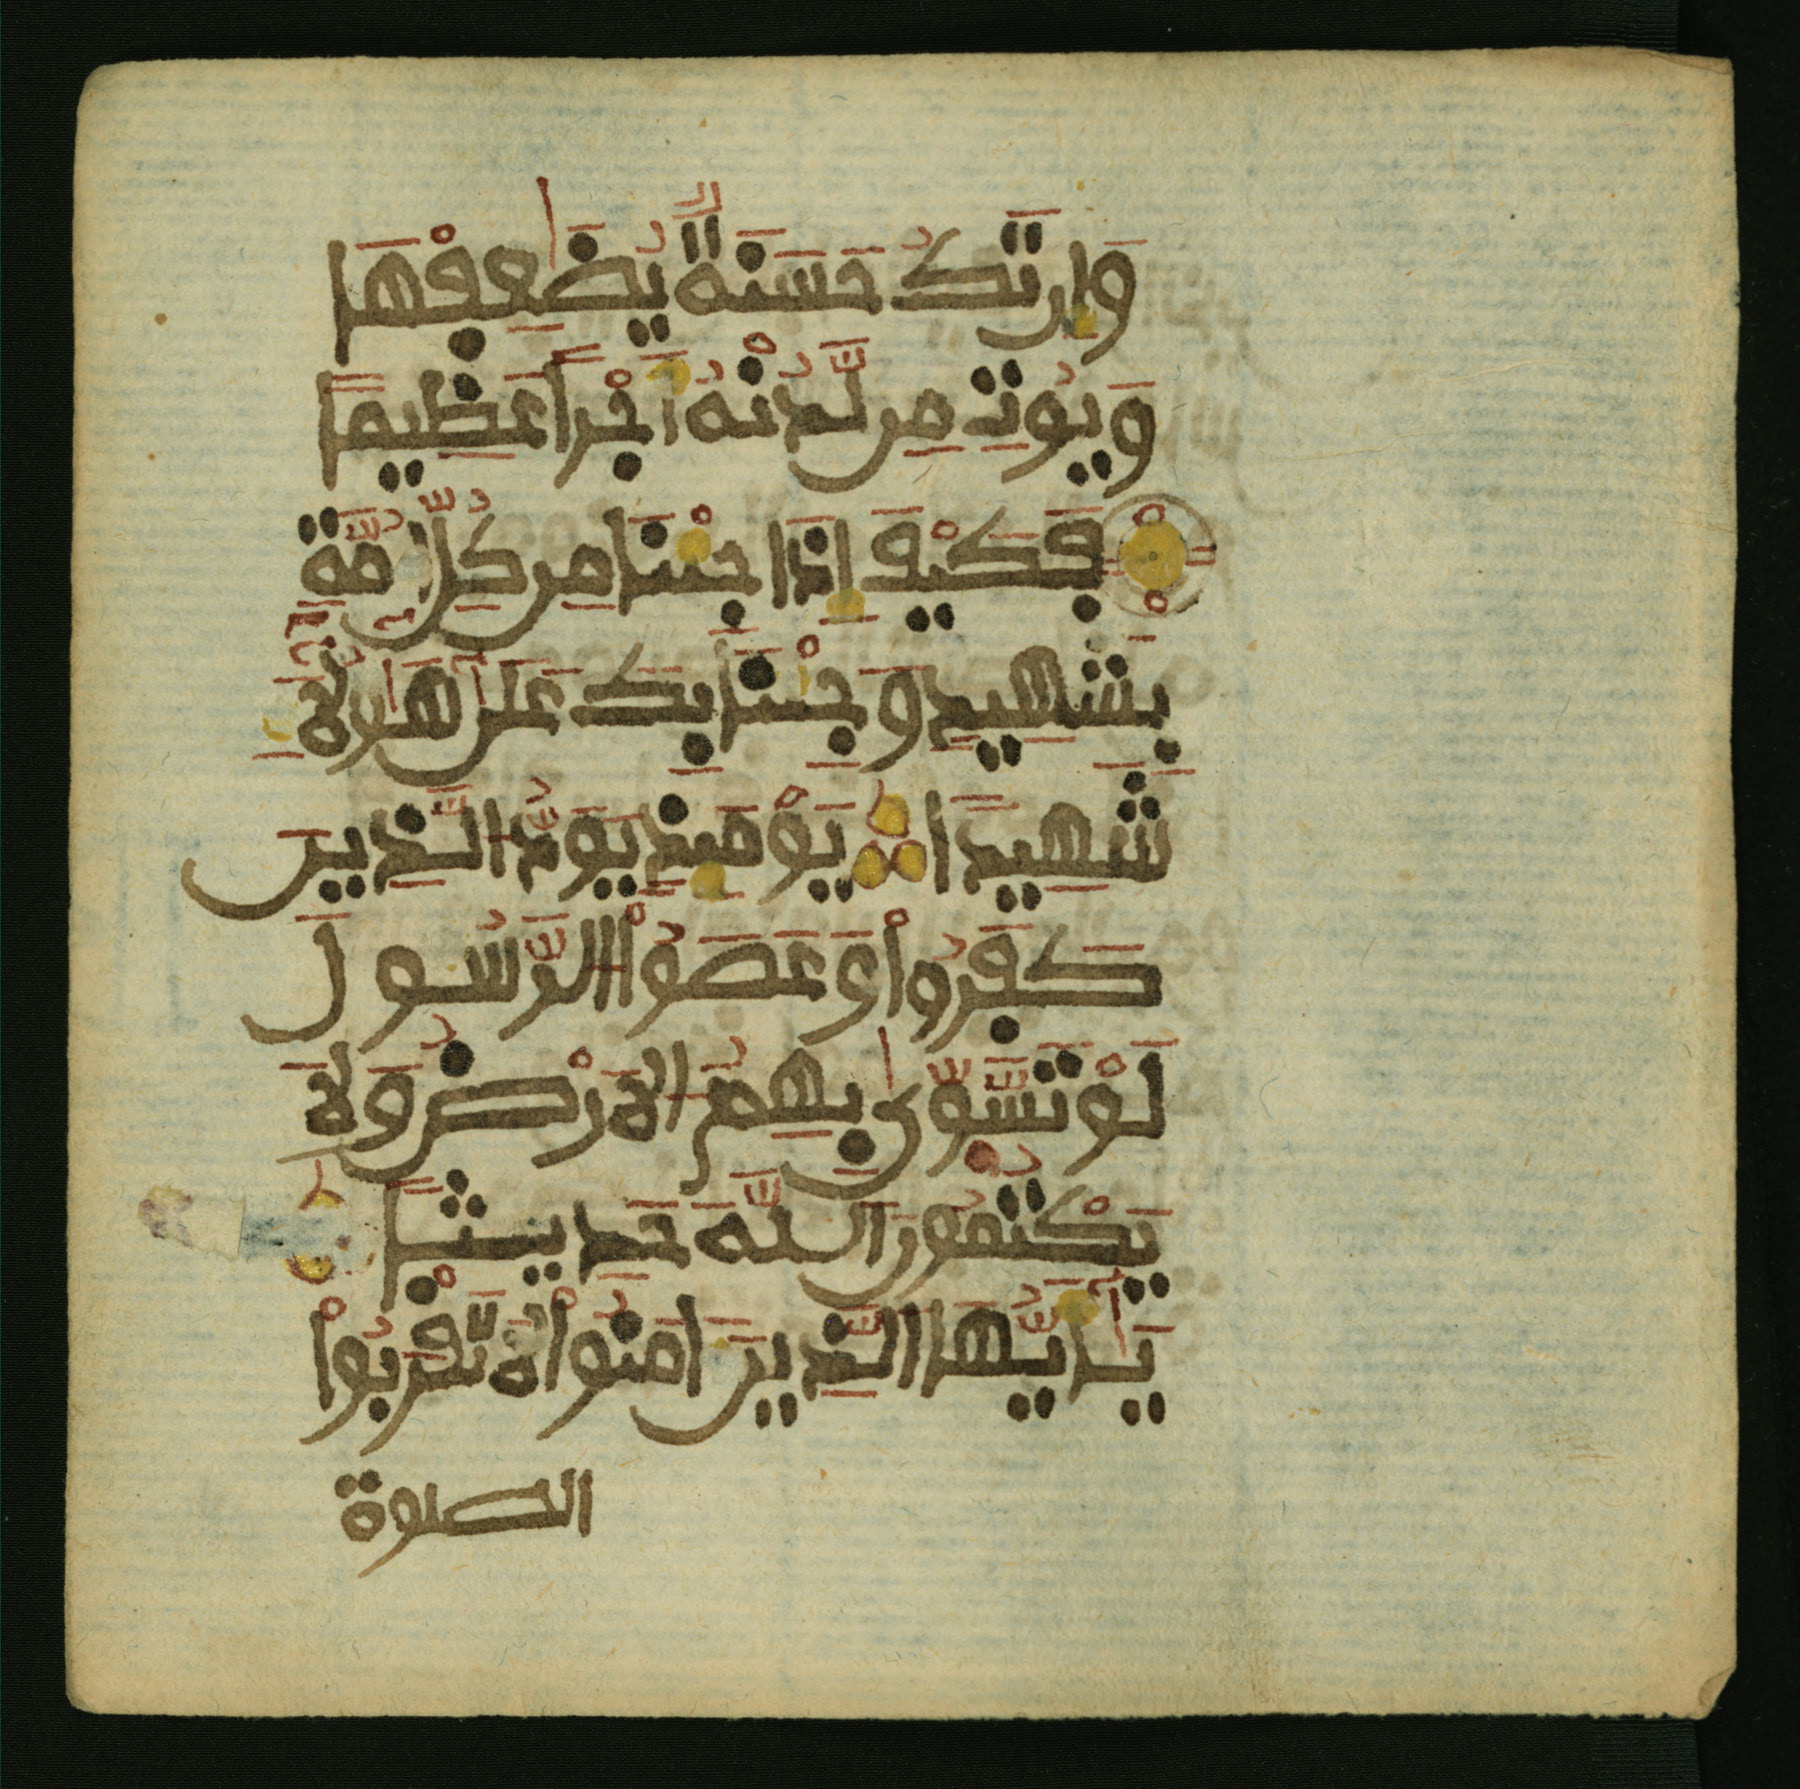 وَإِن تَكُ حَسَنَةٌ يُضَٰعِفْهَا
وَيُوتِ مِن لَّدُنْهُ أَجْراً عَظِيماً
فَكَيْفَ إِذَا جِئْنَا مِن كُلِّ أُمَّةِ
بِشَهِيدٍ وَجِئْنَا بِكَ عَلَىٰ هَٰؤُلَآءِ
شَهِيداً يَوْمَئِذٍ يَوَدُّ الَّذِينَ
كَفَرُواْ وَعَصَوُاْ الرَّسُولَ
لَوْ تَسَّوَّىٰ بِهِمُ الَارْضُ وَلَا
يَكْتُمُونَ اللَّهَ حَدِيثاً
يَٰٓأَيُّهَا الَّذِينَ ءَامَنُواْ لَا تَقْرَبُواْ
الصلوة